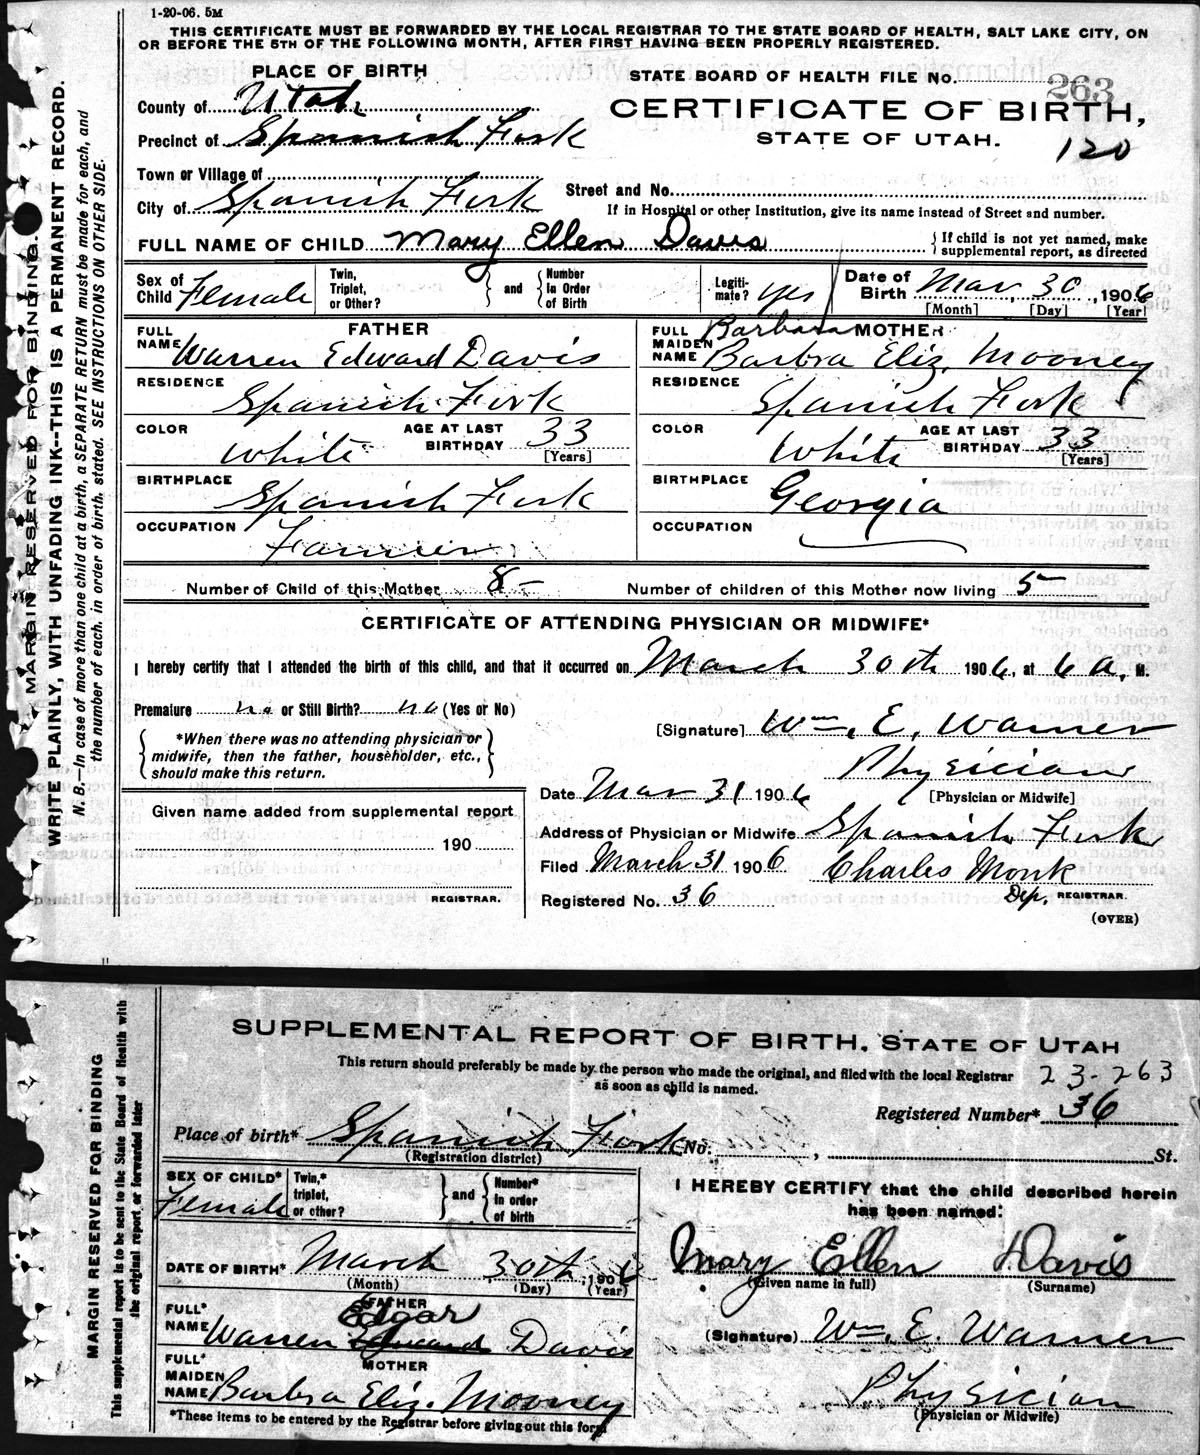 1-20-06. 5M
THIS CERTIFICATE MUST BE FORWARDED BY THE LOCAL REGISTRAR TO THE STATE BOARD OF HEALTH, SALT LAKE CITY, ON
OR BEFORE THE 5TH OF THE FOLLOWING MONTH, AFTER FIRST HAVING BEEN PROPERLY REGISTERED.
MARGIN RESERVED FOR BINDING.
WRITE PLAINLY, WITH UNFADING INK--THIS IS A PERMANENT RECORD.
N. B.—In case of more than one child at a birth, a SEPARATE RETURN must be made for each, and
the number of each, in order of birth, stated. SEE INSTRUCTIONS ON OTHER SIDE.
PLACE OF BIRTH
STATE BOARD OF HEALTH FILE No. 263
County of Utah
CERTIFICATE OF BIRTH,
Precinct of Spanish Fork
STATE OF UTAH.
120
Town or Village of
Street and No.
City of Spanish Fork
If in Hospital or other Institution, give its name instead of Street and number.
FULL NAME OF CHILD Mary Ellen Davis
{If child is not yet named, make
supplemental report, as directed
Sex of Child Female
Twin, Triplet, or Other? } and { Number in Order of Birth
Legitimate? yes
Date of Birth Mar, 30, 1906
[Month] [Day] [Year]
FATHER
FULL NAME Warren Edward Davis
RESIDENCE
Spanish Fork
COLOR White AGE AT LAST BIRTHDAY 33
[Years]
BIRTHPLACE
Spanish Fork
OCCUPATION
Farmer
MOTHER
Barbara
FULL MAIDEN NAME Barbra Eliz. Mooney
RESIDENCE
Spanish Fork
COLOR White AGE AT LAST BIRTHDAY 33
[Years]
BIRTHPLACE
Georgia
OCCUPATION
Number of Child of this Mother 8- Number of children of this Mother now living 5-
CERTIFICATE OF ATTENDING PHYSICIAN OR MIDWIFE*
I hereby certify that I attended the birth of this child, and that it occurred on March 30th 1906, at 6 a, M.
Premature no or Still Birth? no (Yes or No)
[Signature] Wm. E. Warner
*When there was no attending physician or
midwife, then the father, householder, etc.,
should make this return.
Physician
[Physician or Midwife]
Date Mar 31 1906
Given name added from supplemental report
190
REGISTRAR.
Address of Physician or Midwife Spanish Fork
Filed March 31 1906 Charles Monk
Registered No. 36 Dep. REGISTRAR.
(OVER)
MARGIN RESERVED FOR BINDING
This supplemental report is to be sent to the State Board of Health with
the original report or forwarded later
SUPPLEMENTAL REPORT OF BIRTH, STATE OF UTAH
This return should preferably be made by the person who made the original, and filed with the local Registrar
as soon as child is named.
23-263
Registered Number* 36
Place of birth* Spanish Fork No. , St.
(Registration district)
SEX OF CHILD* Female
Twin,* triplet, or other? } and { Number* in order of birth
I HEREBY CERTIFY that the child described herein
has been named:
Mary Ellen Davis
(Given name in full) (Surname)
DATE OF BIRTH* March 30th, 1906
(Month) (Day) (Year)
FATHER
Edgar
FULL* NAME Warren Edward Davis
(Signature) Wm. E. Warner
MOTHER
FULL* MAIDEN NAME Barbra Eliz. Mooney
Physician
(Physician or Midwife)
*These items to be entered by the Registrar before giving out this form